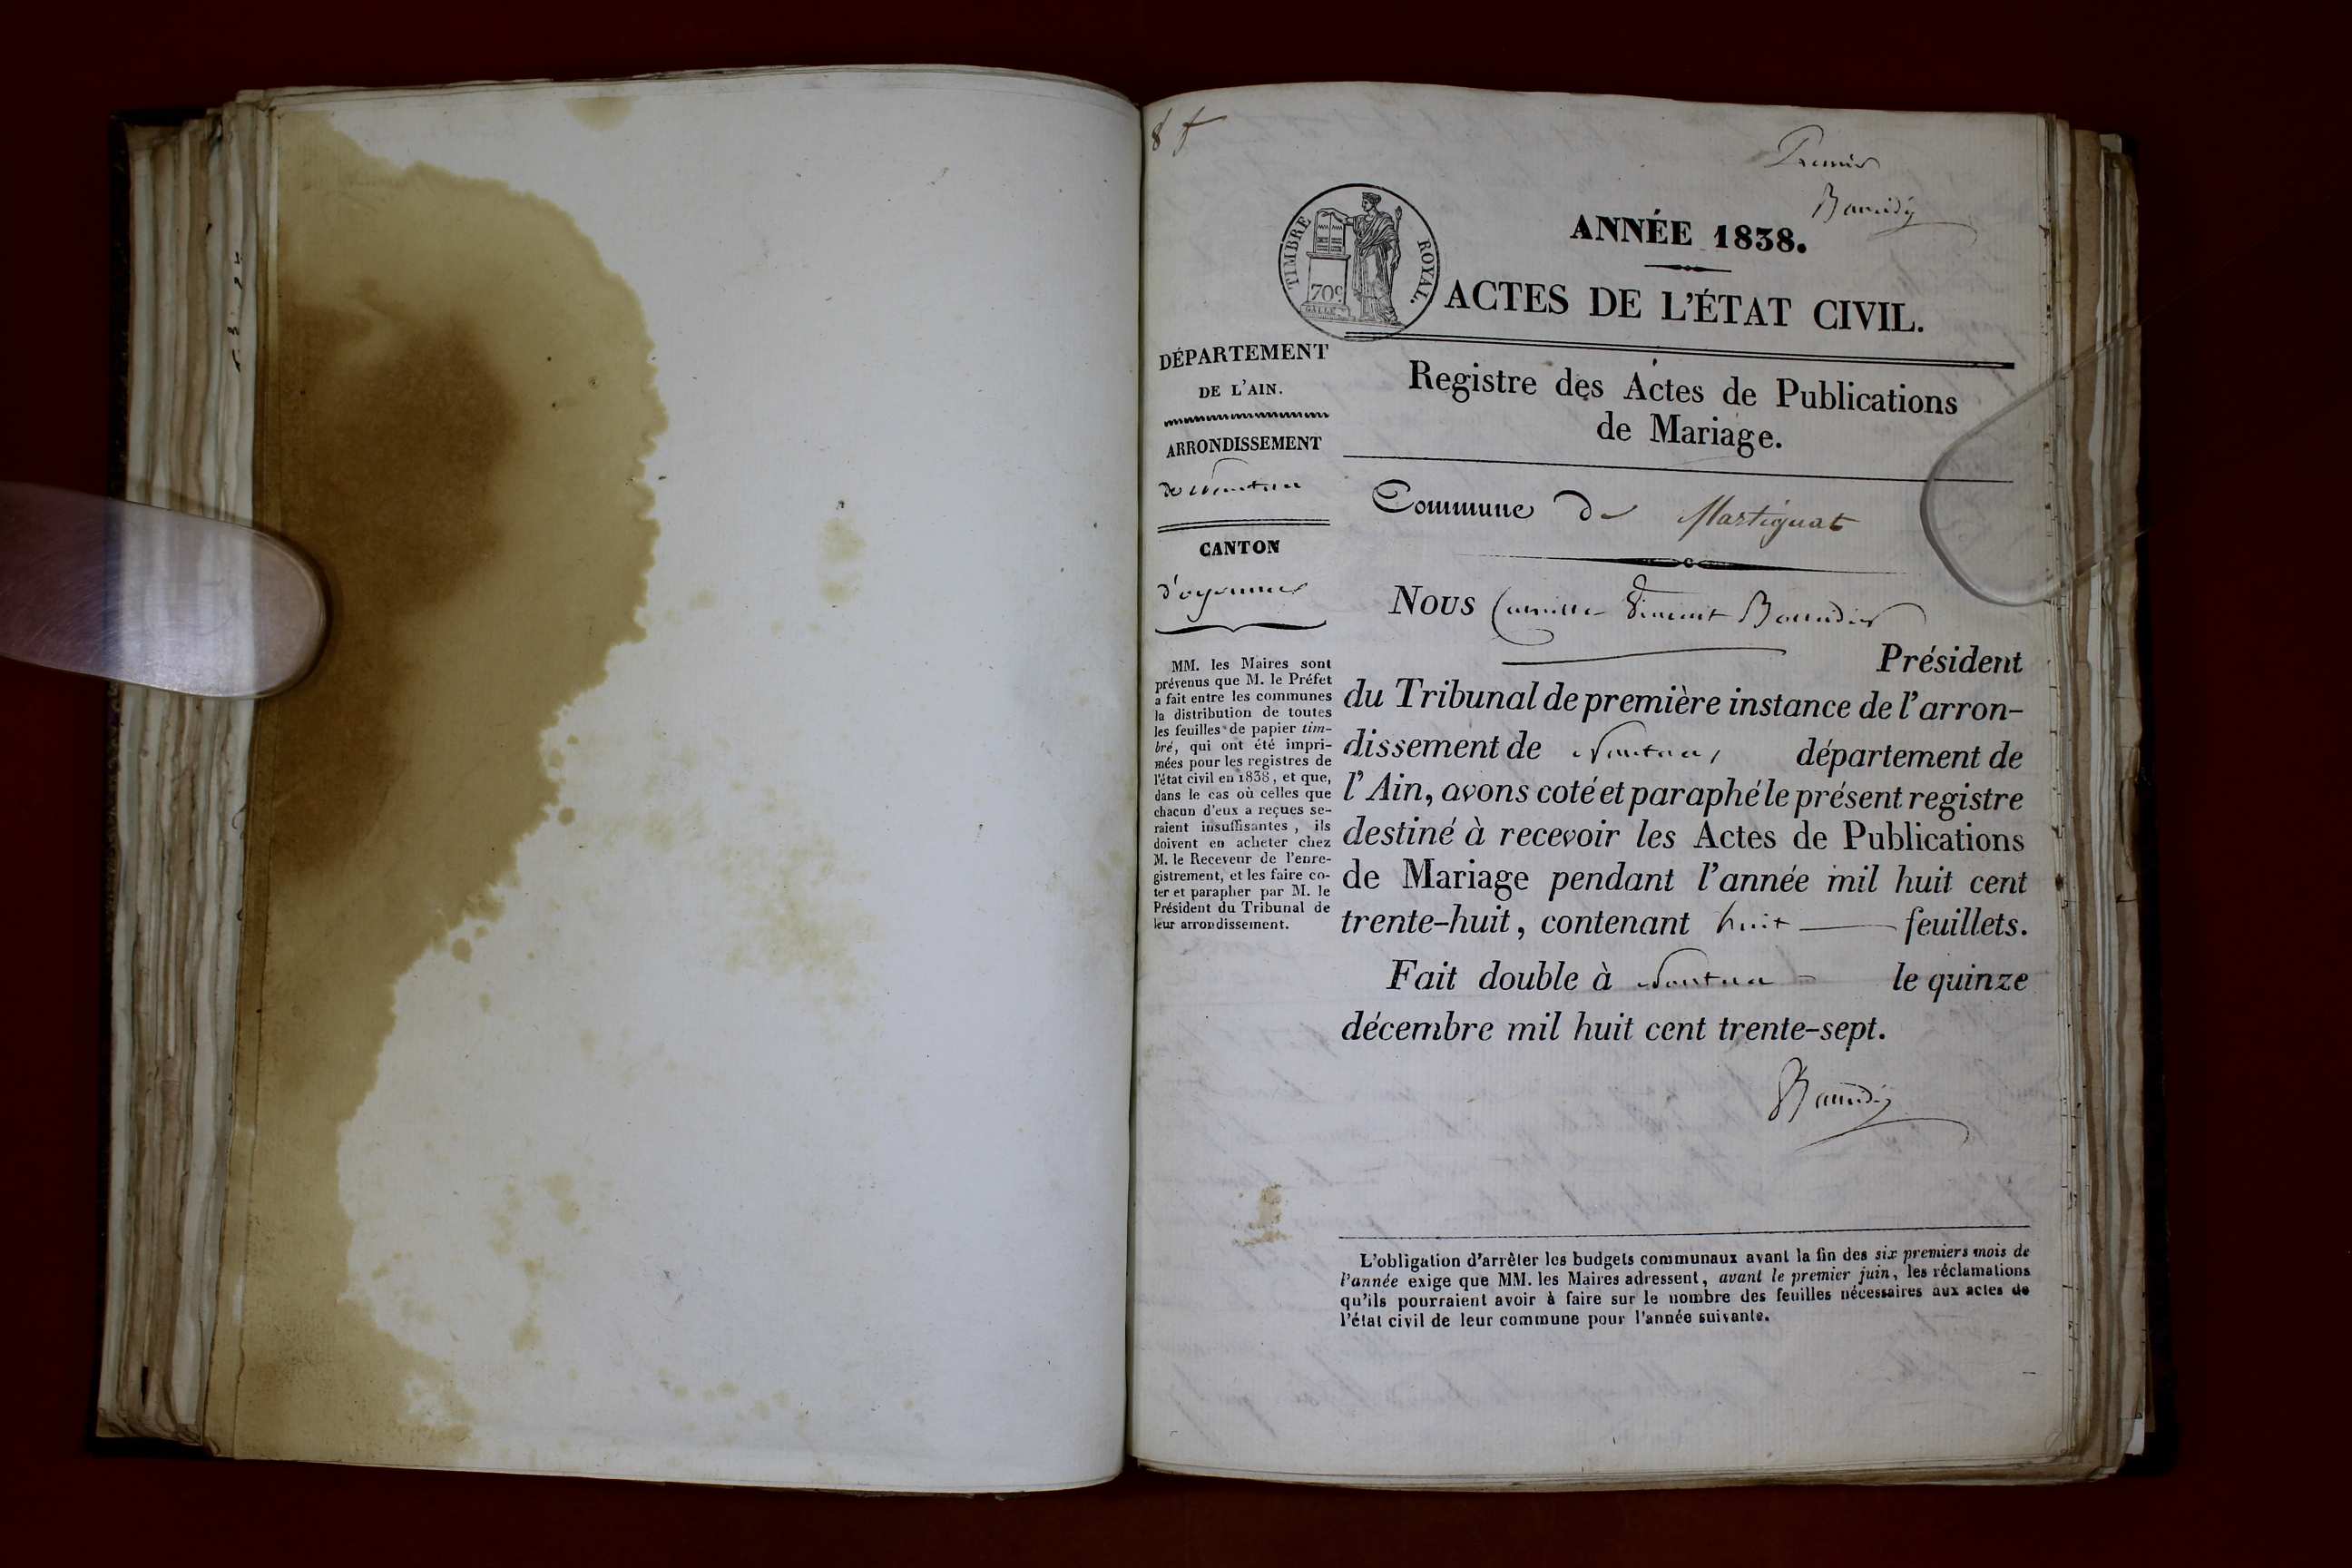 8 f
Premier
ANNÉE 1838.
TIMBRE ROYAL.
70c
GALLE
ACTES DE L'ÉTAT CIVIL.
Registre des Actes de Publications
de Mariage.
Commune de Martignat
DÉPARTEMENT
DE L'AIN.
ARRONDISSEMENT
de Nantua
CANTON
d'oyonnax
MM. les Maires sont
prévenus que M. le Préfet
a fait entre les communes
la distribution de toutes
les feuilles de papier tim-
bré, qui ont été impri-
mées pour les registres de
l'état civil en 1838, et que,
dans le cas où celles que
chacun d'eux a reçues se-
raient insuffisantes, ils
doivent en acheter chez
M. le Receveur de l'enre-
gistrement, et les faire co-
ter et parapher par M. le
Président du Tribunal de
leur arrondissement.
Nous Camille Vincent
Président
du Tribunal de première instance de l'arron-
dissement de Nantua, département de
l'Ain, avons coté et paraphé le présent registre
destiné à recevoir les Actes de Publications
de Mariage pendant l'année mil huit cent
trente-huit, contenant huit feuillets.
Fait double à Nantua le quinze
décembre mil huit cent trente-sept.
L'obligation d'arrêter les budgets communaux avant la fin des six premiers mois de
l'année exige que MM. les Maires adressent, avant le premier juin, les réclamations
qu'ils pourraient avoir à faire sur le nombre des feuilles nécessaires aux actes de
l'état civil de leur commune pour l'année suivante.